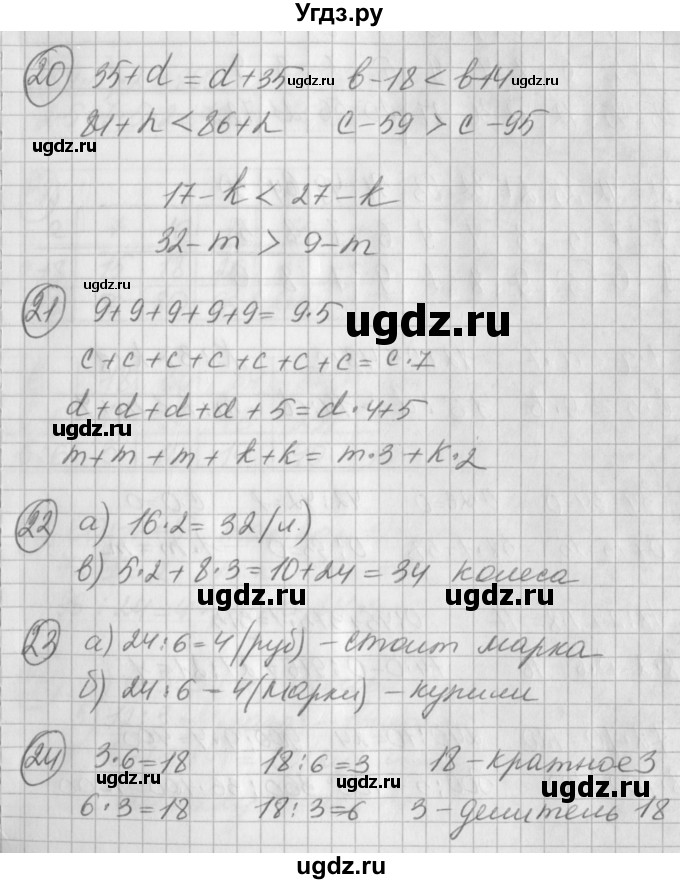 Угдз.ру
20 35+d = d+35 ugdz.ru в-18 < в+14 ugdz.ru
81+h < 86+h с-59 > с-95
ugdz.ru ugdz.ru
17-k < 27-k
32-m > 9-m
ugdz.ru
21 9+9+9+9+9= 9·5 ugdz.ru
с+с+с+с+с+с+с= с·7
d+d+d+d+5=d·4+5
ugdz.ru
m+m+m+ k+k= m·3+k·2
22 а) 16·2= 32(л.)
в) 5·2+8·3=10+24=34 колеса
ugdz.ru ugdz.ru
23 а) 24:6=4(руб) - стоит марка
б) 24:6-4(марки) - купили
24 3·6=18 18:6=3 18-кратное 3
ugdz.ru ugdz.ru ugdz.ru
6:3=18 18:3=6 3-делитель 18
ugdz.ru